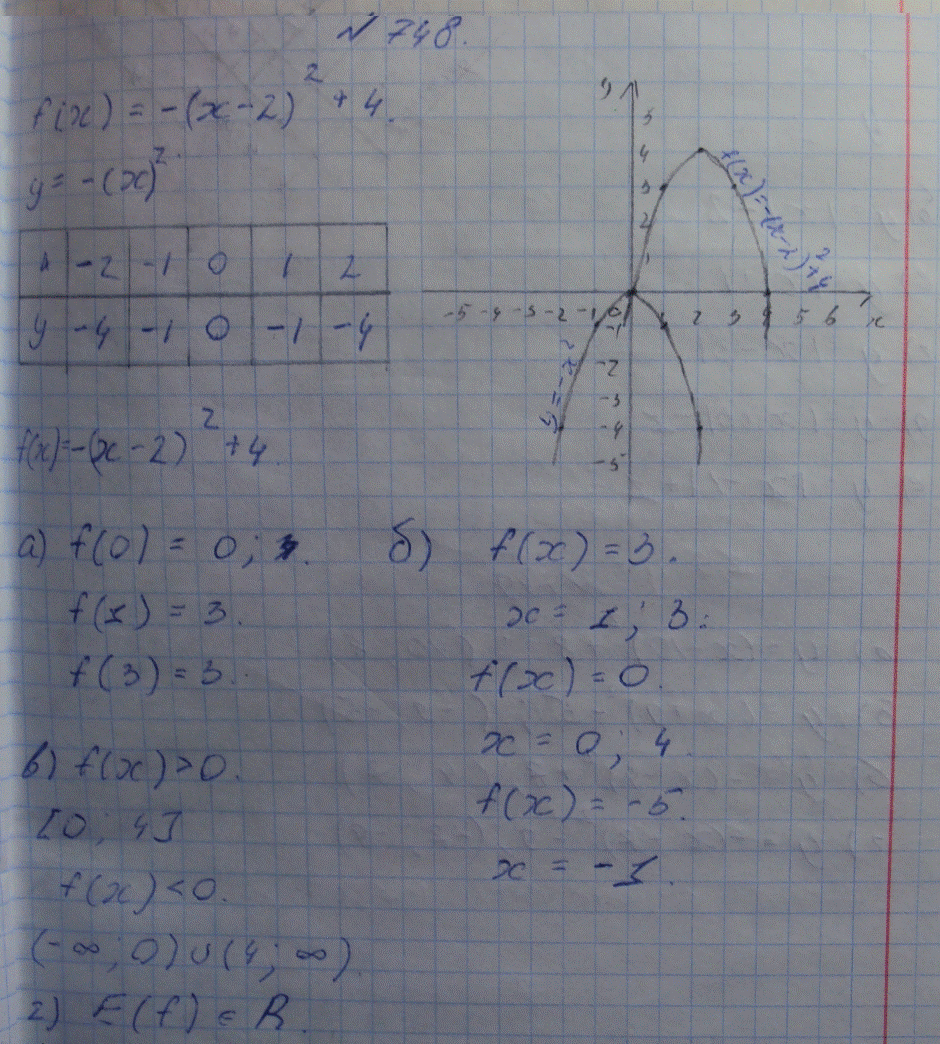 № 748.
f(x) = -(x-2)² + 4.
y = -(x)².
x -2 -1 0 1 2
y -4 -1 0 -1 -4
y
5
4
3
2
1
-5 -4 -3 -2 -1 0 1 2 3 4 5 6 x
-1
-2
-3
-4
-5
f(x)=-(x-2)²+4
y=-x²
f(x)=-(x-2)²+4
а) f(0) = 0;
f(1) = 3.
f(3) = 3.
б) f(x) = 3.
x = 1; 3.
f(x) = 0.
x = 0; 4.
f(x) = -5.
x = -1.
в) f(x) > 0.
[0; 4]
f(x) < 0.
(-∞; 0) ∪ (4; ∞).
г) E(f) ∈ R.